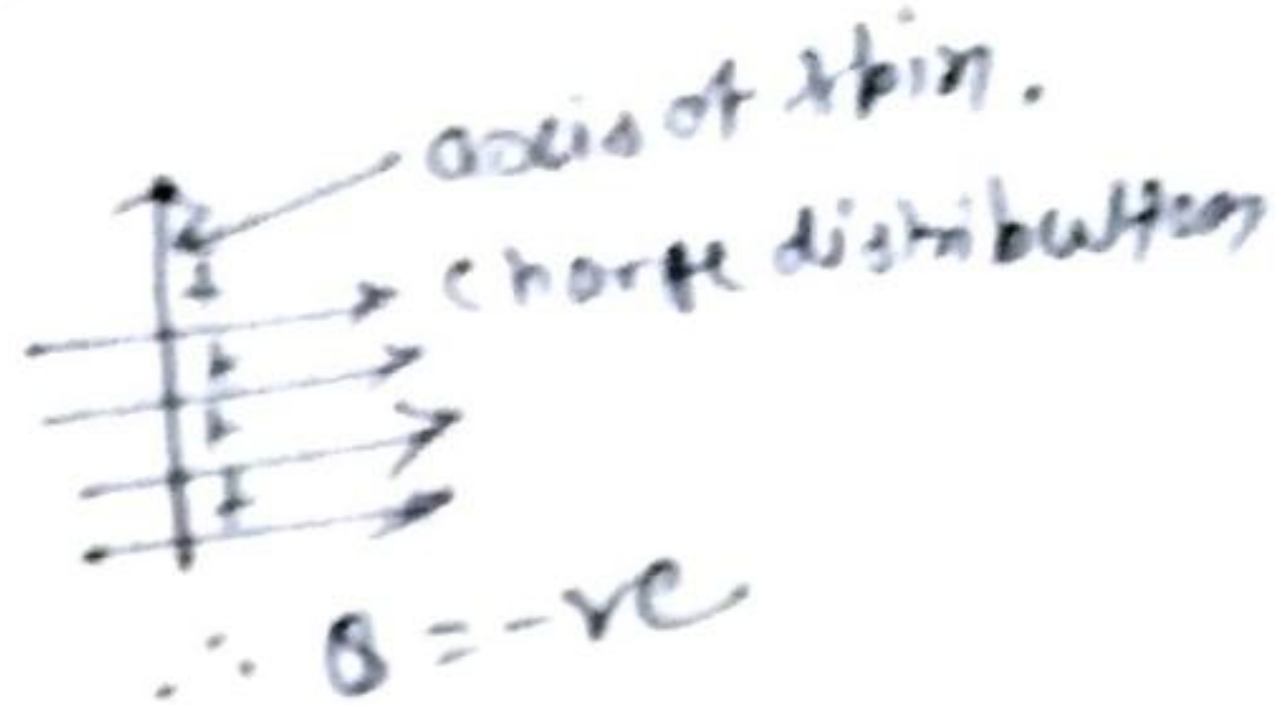 axis of spin.
charge distribution
∴ Q = -ve